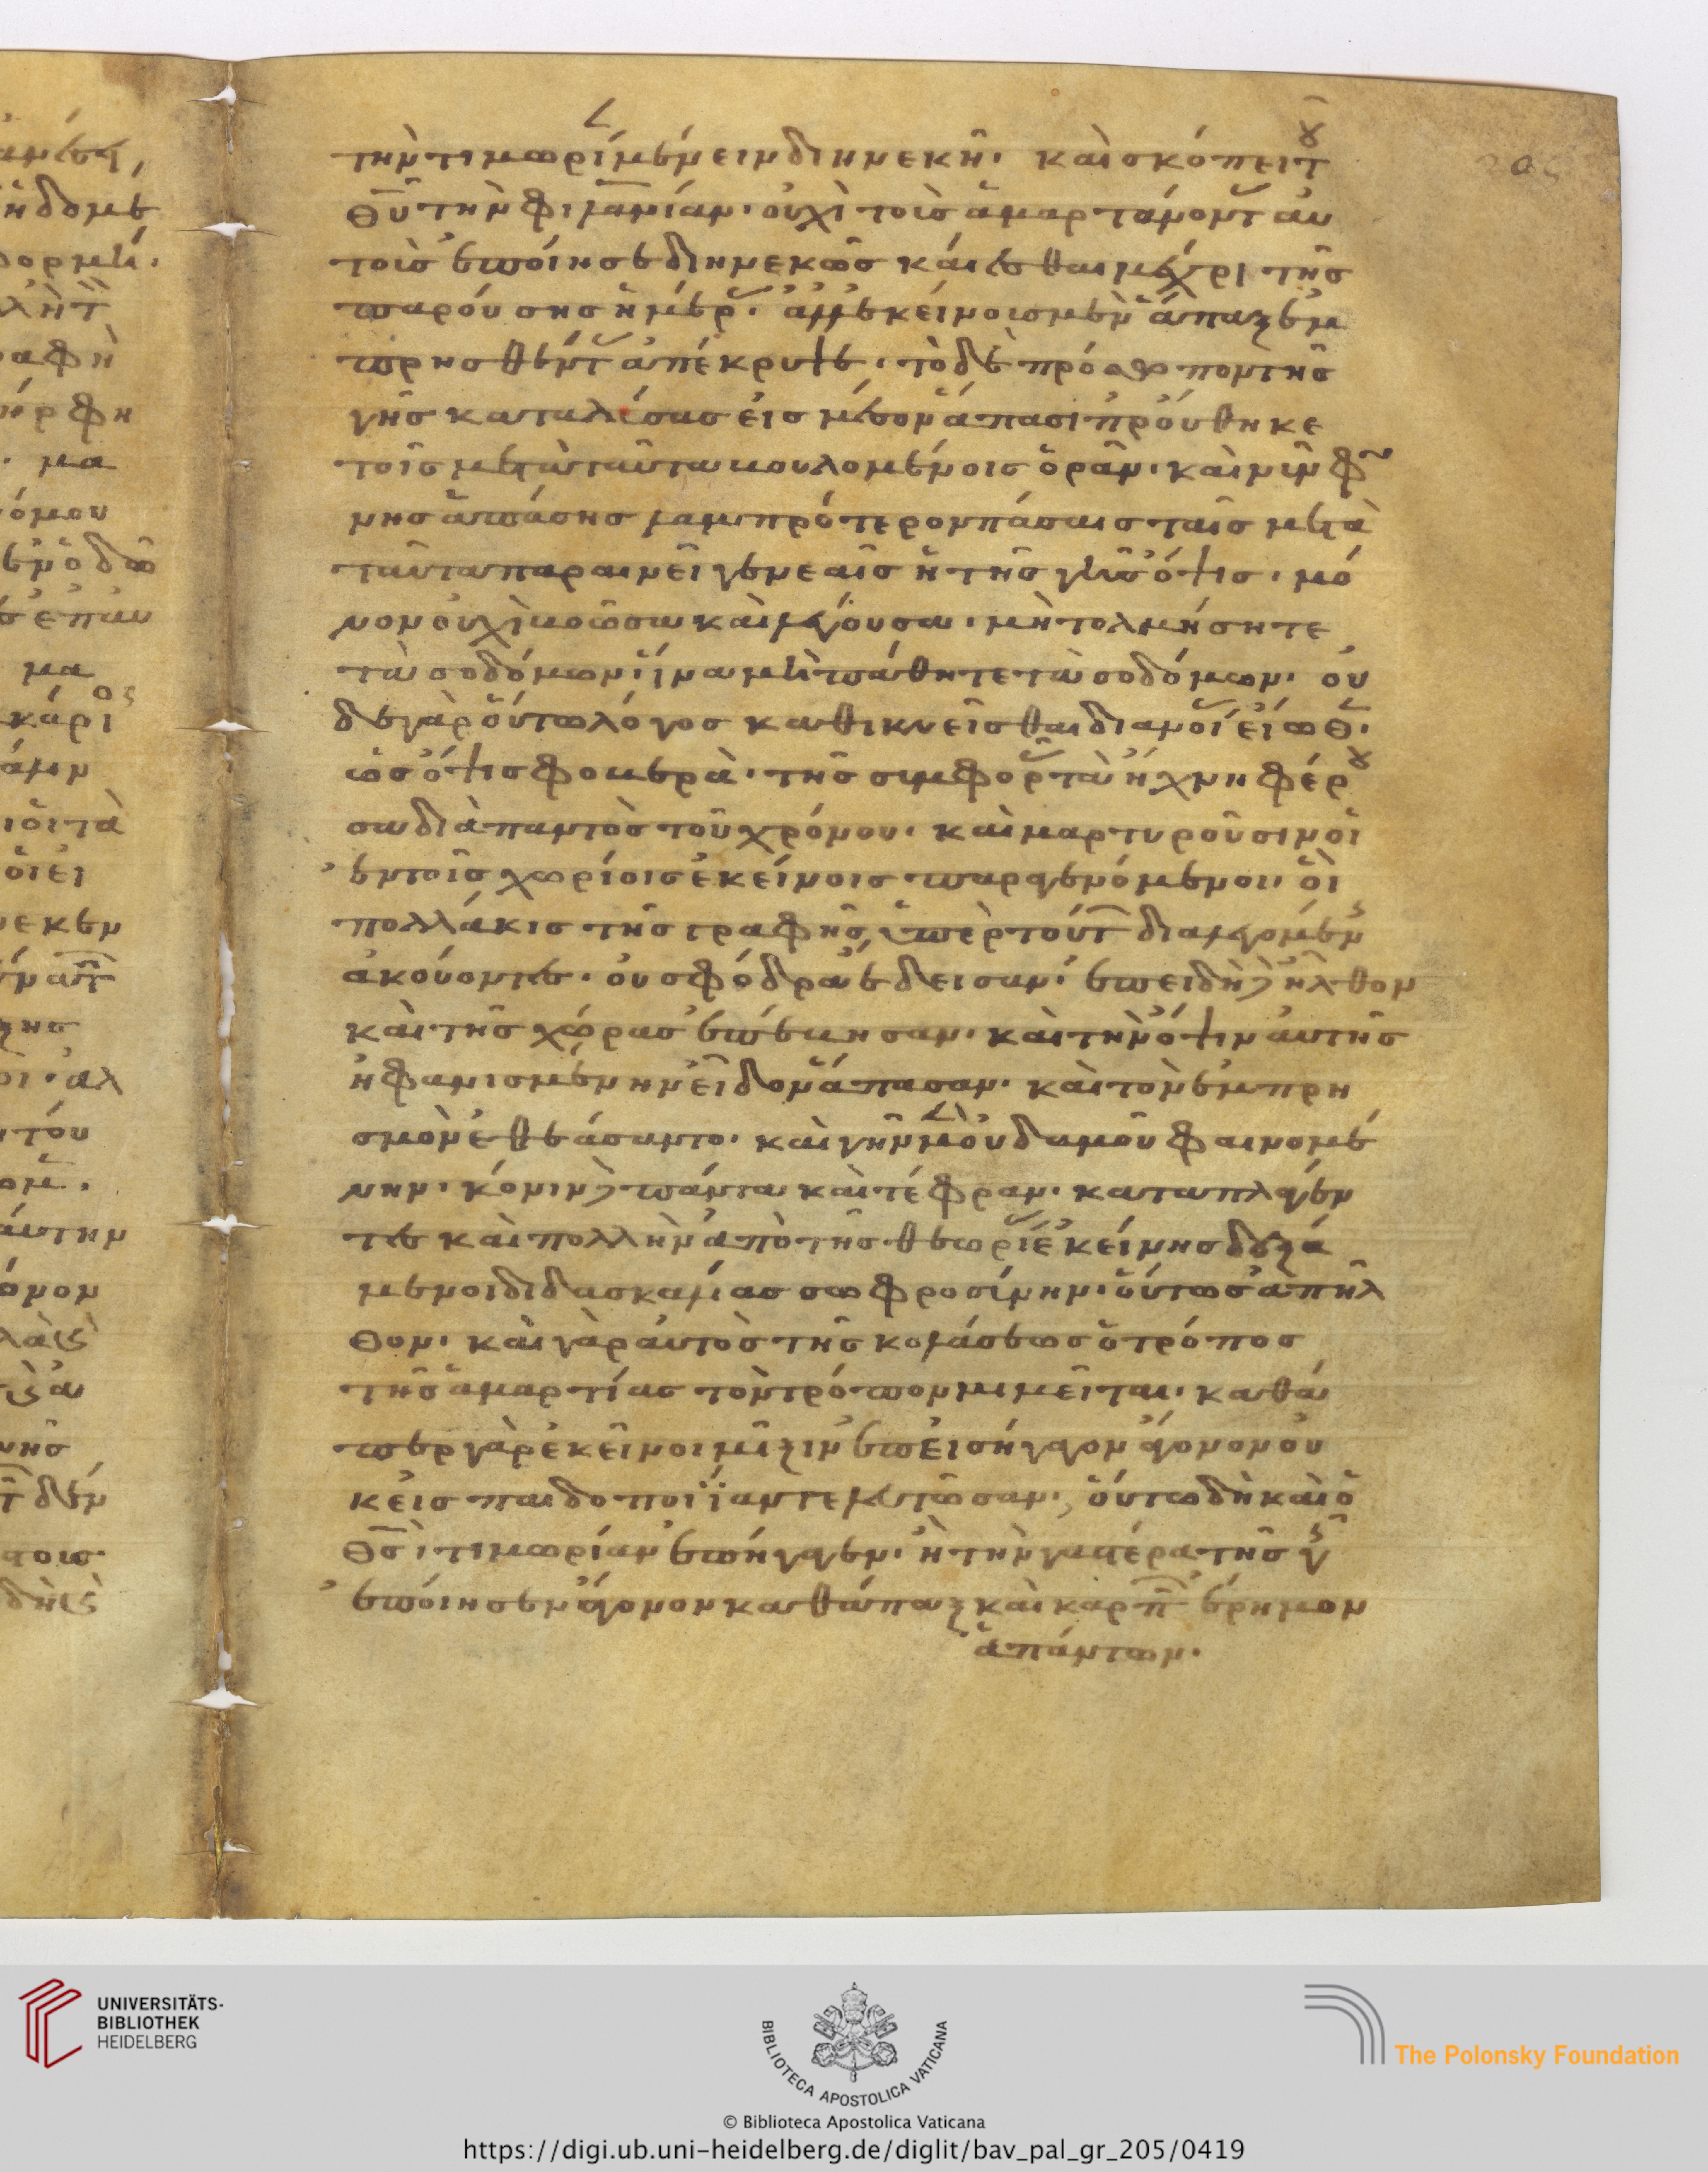 τὴν τιμωρί μένειν διηνεκῆ. καὶ σκόπει τοῦ
θῦ τὴν φιλανίαν. οὐχὶ τοῖς ἁμαρτάνοντ αὐ
τοῖς ἐποίησε διηνεκῶς καίεσθαι μέχρι τῆς
παρούσης ἡμέρ. ἀλλ' ἐκείνοις μὲν ἅπαξ ἐμ
πρησθέντ ἀπέκρυψε. τὸ δὲ πρόσωπον τῆς
γῆς εἰς μέσον ἅπασι προύθηκε
τοῖς μετὰ ταῦτα βουλομένοις ὁρᾶν. καὶ νῦν φω
νῆς ἁπάσης λαμπρότερον πάσαις ταῖς μετὰ
ταῦτα παραινεῖ γενεαῖς ἡ τῆς γῆς ὄψις. μό
νον οὐχὶ βοῶσα καὶ λέγουσα. μὴ τολμήσητε
τὰ σοδόμων. ἵνα μὴ πάθητε τὰ σοδόμων. οὐ
δὲ γὰρ οὕτω λόγος καθικνεῖσθαι διανοί εἴωθ.
ὡς ὄψις φοβερὰ. τῆς συμφορ τὰ ἤχνη φέρου
σα διὰ παντὸς τοῦ χρόνου. καὶ μαρτυροῦσιν οἱ
ἐν τοῖς χωρίοις ἐκείνοις παραγενόμενοι. οἳ
πολλάκις τῆς γραφῆς ὑπὲρ τούτ διαλεγομέν
ἀκούοντες. οὐ σφόδρα ἔδεισαν. ἐπειδὴ δὲ ἦλθον
καὶ τῆς χώρας ἐπέβησαν. καὶ τὴν ὄψιν αὐτῆς
ἠφανισμένην εἶδον ἅπασαν. καὶ τὸν ἐμπρη
σμὸν ἐθεάσαντο. καὶ γῆν μὲν οὐδαμοῦ φαινομέ
νην. κόνιν δὲ πάντα καὶ τέφραν. καταπλαγέν
τες καὶ πολλὴν ἀπὸ τῆς θεωρί ἐκείνης δεξά
μενοι διδασκαλίας σωφροσύνην. οὕτως ἀπῆλ
θον. καὶ γὰρ αὐτὸς τῆς κολάσεως ὁ τρόπος
τῆς ἁμαρτίας τὸν τρόπον μιμεῖται. καθά
περ γὰρ ἐκεῖνοι μῖξιν ἐπεισήγαγον ἄγονον οὐ
κ εἰς παιδοποιΐαν τελευτῶσαν, οὕτω δὴ καὶ ὁ
θς τιμωρίαν ἐπήγαγεν. ἣ τὴν γαστέρα τῆς γῆς
ἐποίησεν ἄγονον καθάπαξ καὶ καρπ ἔρημον
ἁπάντων.
UNIVERSITÄTS-
BIBLIOTHEK
HEIDELBERG
BIBLIOTECA APOSTOLICA VATICANA
The Polonsky Foundation
© Biblioteca Apostolica Vaticana
https://digi.ub.uni-heidelberg.de/diglit/bav_pal_gr_205/0419